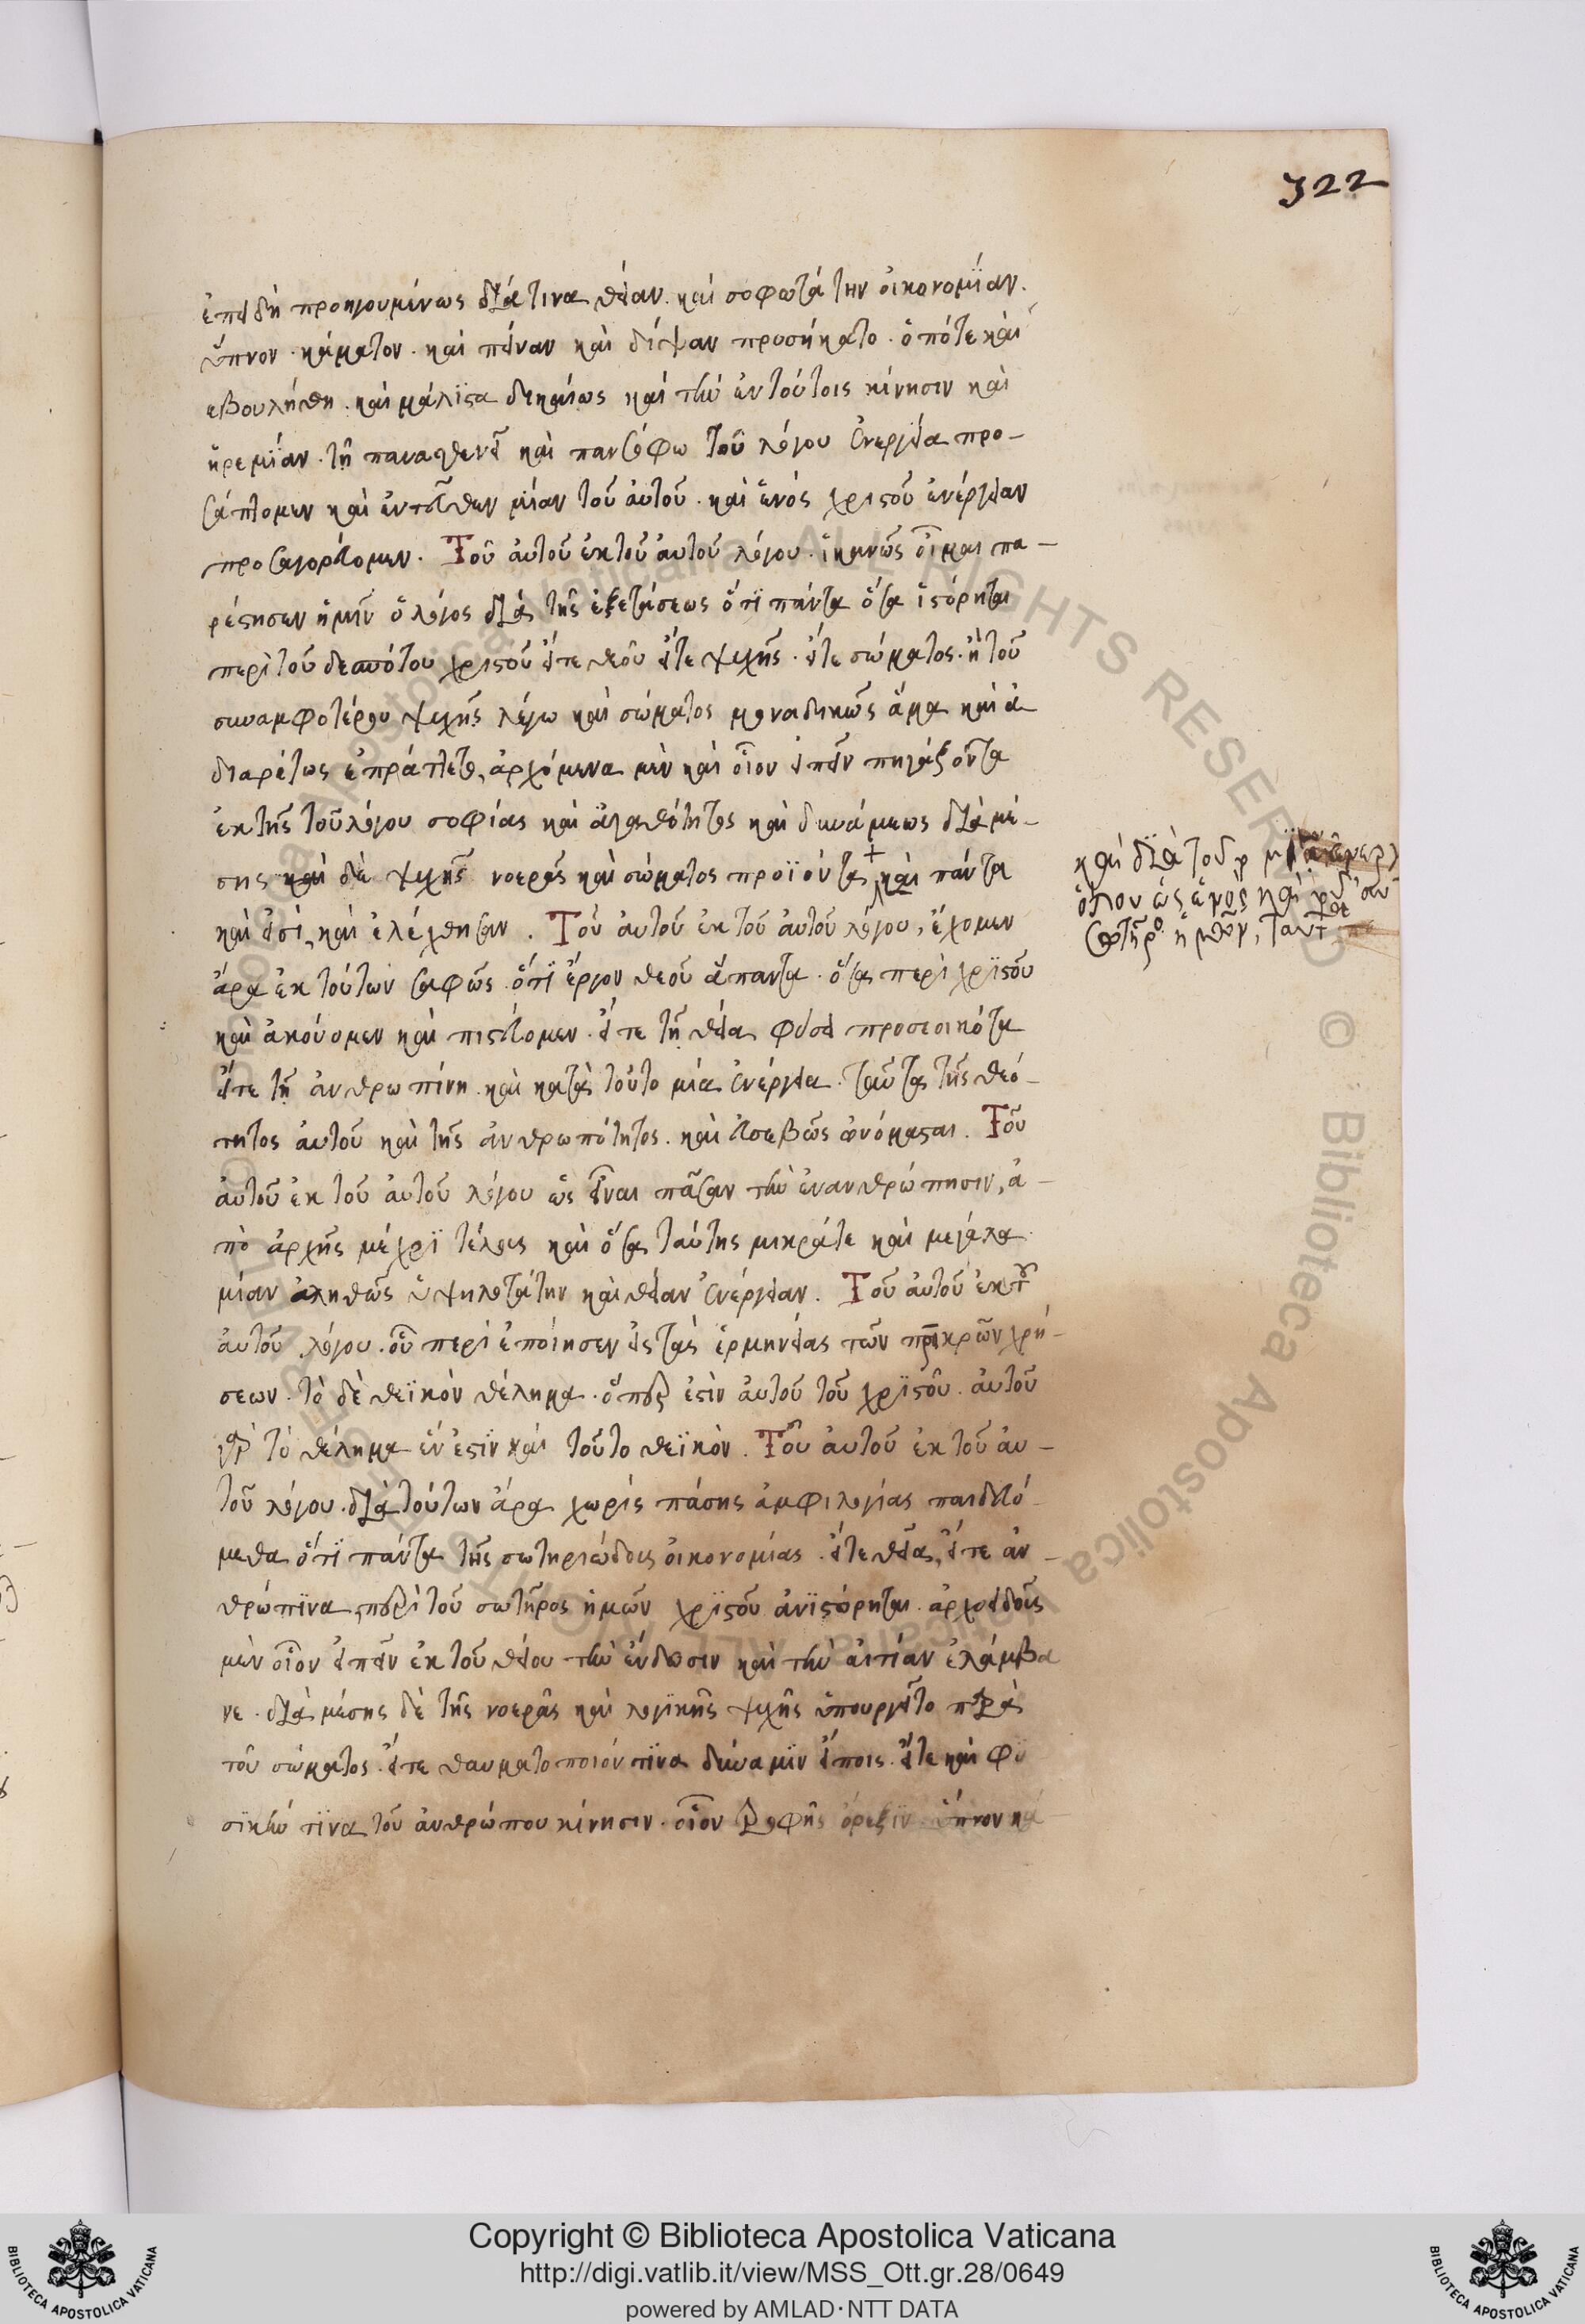 322
ἐπειδὴ προηγουμένως διά τινα θείαν. καὶ σοφωτάτην οἰκονομίαν.
ὕπνον. κάματον. καὶ πείναν καὶ δίψαν προσήκατο. ὁπότε καὶ
εβουλήθη. καὶ μάλιστα δικαίως καὶ τὴν ἐν τούτοις κίνησιν καὶ
ἠρεμίαν. τῇ πανασθενεῖ καὶ πανσόφω τοῦ λόγου ἐνεργεία προ-
σάπτομεν καὶ ἐντεῦθεν μίαν τοῦ αὐτοῦ. καὶ ἑνός χριστοῦ ἐνέργειαν
προσαγορεύομεν. Τοῦ αὐτοῦ ἐκ τοῦ αὐτοῦ λόγου. ἱκανῶς οἶμαι πα-
ρέστησεν ἡμῖν ὁ λόγος διὰ τῆς ἐξετάσεως ὅτι πάντα ὅσα ἱστόρηται
περὶ τοῦ δεσπότου χριστοῦ εἴτε θεοῦ εἴτε ψυχῆς. εἴτε σώματος. ἢ τοῦ
συναμφοτέρου ψυχῆς λέγω καὶ σώματος μοναδικῶς ἅμα καὶ ἀ
διαρέτως ἐπράττετο, ἀρχόμενα μὲν καὶ οἷον εἰπεῖν πηγάζοντα
ἐκ τῆς τοῦ λόγου σοφίας καὶ ἀγαθότητος καὶ δυνάμεως διὰ μέ-
σης καὶ δὲ ψυχῆς νοερᾶς καὶ σώματος προϊόντα + καὶ πάντα
καὶ εἰσὶ, καὶ ἐλέχθησαν. Τοῦ αὐτοῦ ἐκ τοῦ αὐτοῦ λόγου, ἔχομεν
ἄρα ἐκ τούτων σαφῶς. ὅτι ἔργον θεοῦ ἅπαντα. ὅσα περὶ χριστοῦ
καὶ ἀκούομεν καὶ πιστεύομεν. εἴτε τῇ θεία φύσει προσεοικότα
εἴτε τῇ ἀνθρωπίνη. καὶ κατὰ τοῦτο μία ἐνέργεια. ταῦτα τῆς θεό-
τητος αὐτοῦ καὶ τῆς ἀνθρωπότητος. καὶ εὐσεβῶς ὠνόμασται. Τοῦ
αὐτοῦ ἐκ τοῦ αὐτοῦ λόγου ὡς εἶναι πᾶσαν τὴν ἐνανθρώπησιν, ἀ-
πὸ ἀρχῆς μέχρι τέλους καὶ ὅσα ταύτης μικρά τε καὶ μεγάλα
μίαν ἀληθῶς ὑψηλοτάτην καὶ θείαν ἐνέργειαν. Τοῦ αὐτοῦ ἐκ τοῦ
αὐτοῦ λόγου. οὗ περὶ ἐποίησεν εἰς τὰς ἑρμηνείας τῶν πατρικῶν χρή-
σεων. τὸ δὲ θεϊκὸν θέλημα. ὅπερ ἐστὶν αὐτοῦ τοῦ χριστοῦ. αὐτοῦ
γὰρ τὸ θέλημα ἕν ἐστιν καὶ τοῦτο θεϊκὸν. Τοῦ αὐτοῦ ἐκ τοῦ αὐ-
τοῦ λόγου. διὰ τούτων ἄρα χωρὶς πάσης ἀμφιλογίας παιδευό-
μεθα ὅτι πάντα τῆς σωτηριώδους οἰκονομίας. εἴτε θεῖα, εἴτε ἀν-
θρώπινα, περὶ τοῦ σωτῆρος ἡμῶν χριστοῦ ἀνιστόρηται. ἀρχοειδῶς
μὲν οἷον εἰπεῖν ἐκ τοῦ θείου τὴν ἔνδοσιν καὶ τὴν αἰτίαν ἐλάμβα
νε. διὰ μέσης δὲ τῆς νοερᾶς καὶ λογικῆς ψυχῆς ὑπουργεῖτο παρὰ
τοῦ σώματος. εἴτε θαυματοποιόν τινα δύναμιν εἴποις. εἴτε καὶ φυ
σικήν τινα τοῦ ἀνθρώπου κίνησιν. οἷον τροφῆς ὄρεξιν. ὕπνον κά-
καὶ διὰ τοῦ
ὅλου ὡς ἑνὸς καὶ
σωτῆρος ἡμῶν, ταῦτα
Copyright © Biblioteca Apostolica Vaticana
http://digi.vatlib.it/view/MSS_Ott.gr.28/0649
powered by AMLAD·NTT DATA